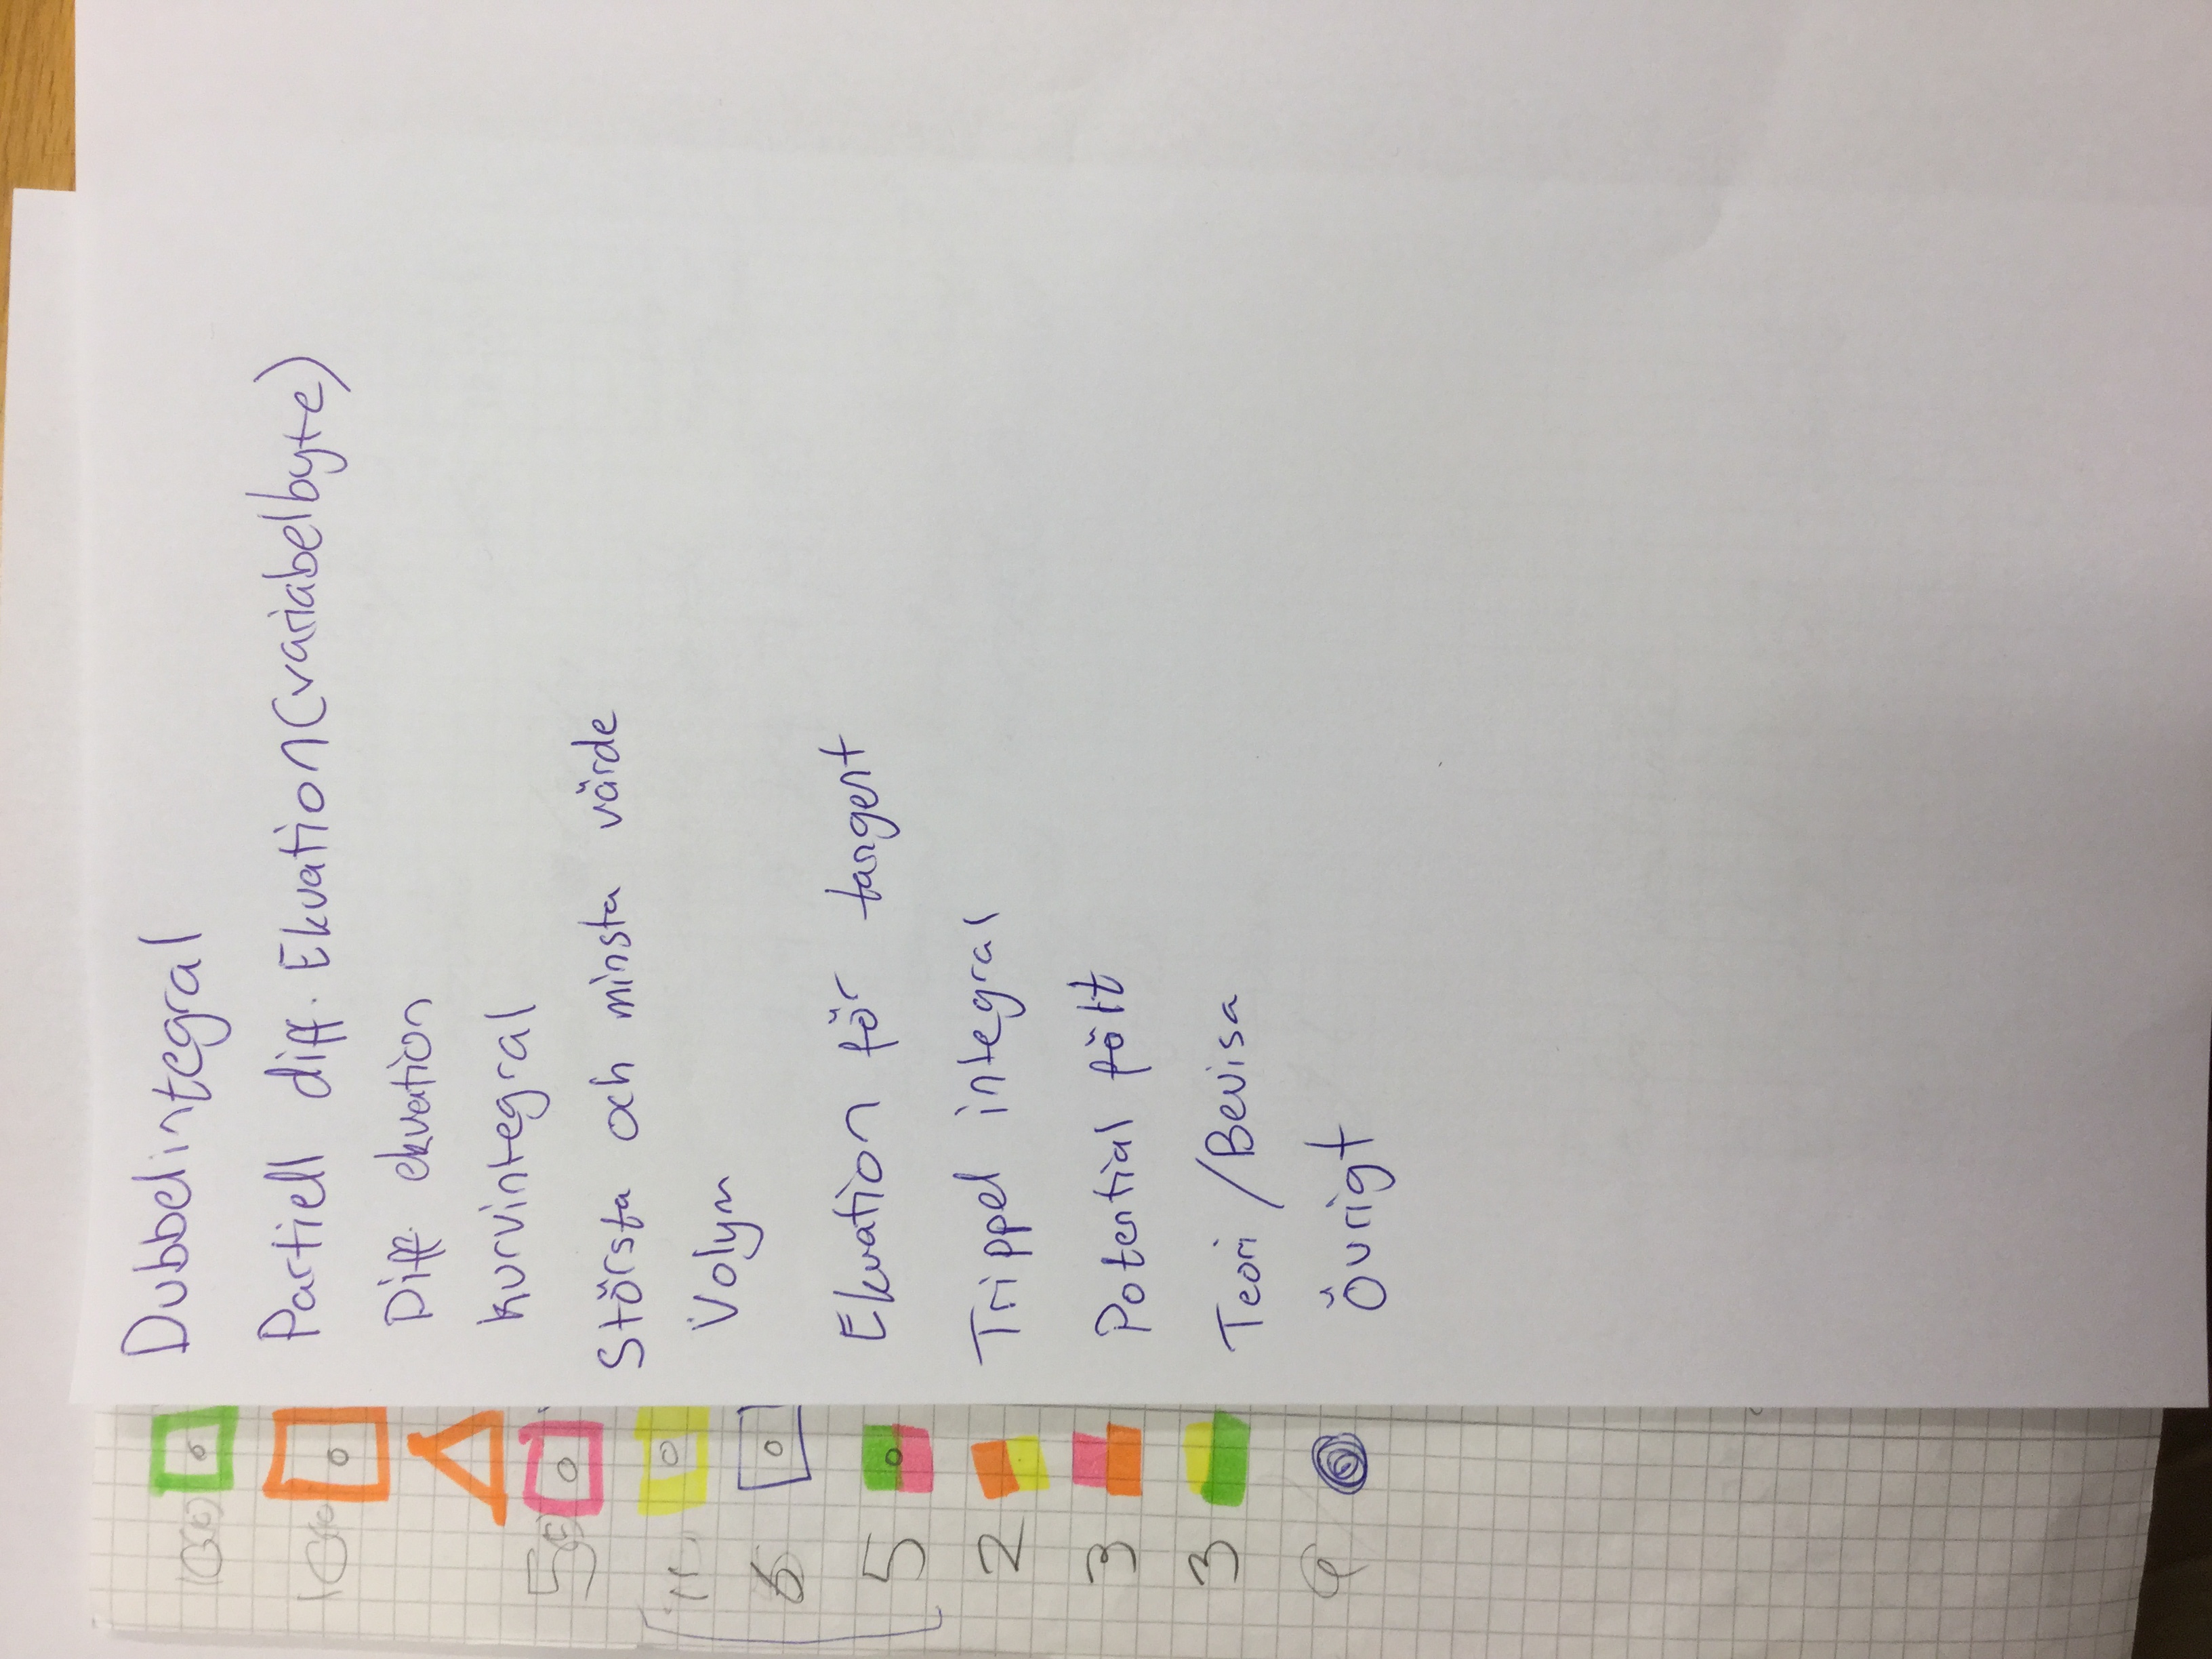 Dubbelintegral
Partiell diff. Ekvation (variabelbyte)
Diff. ekvation
kurvintegral
5 Största och minsta värde
Volym
6
5 Ekvation för tangent
2 Trippel integral
3 Potential fält
3 Teori / Bevisa
9 Övrigt